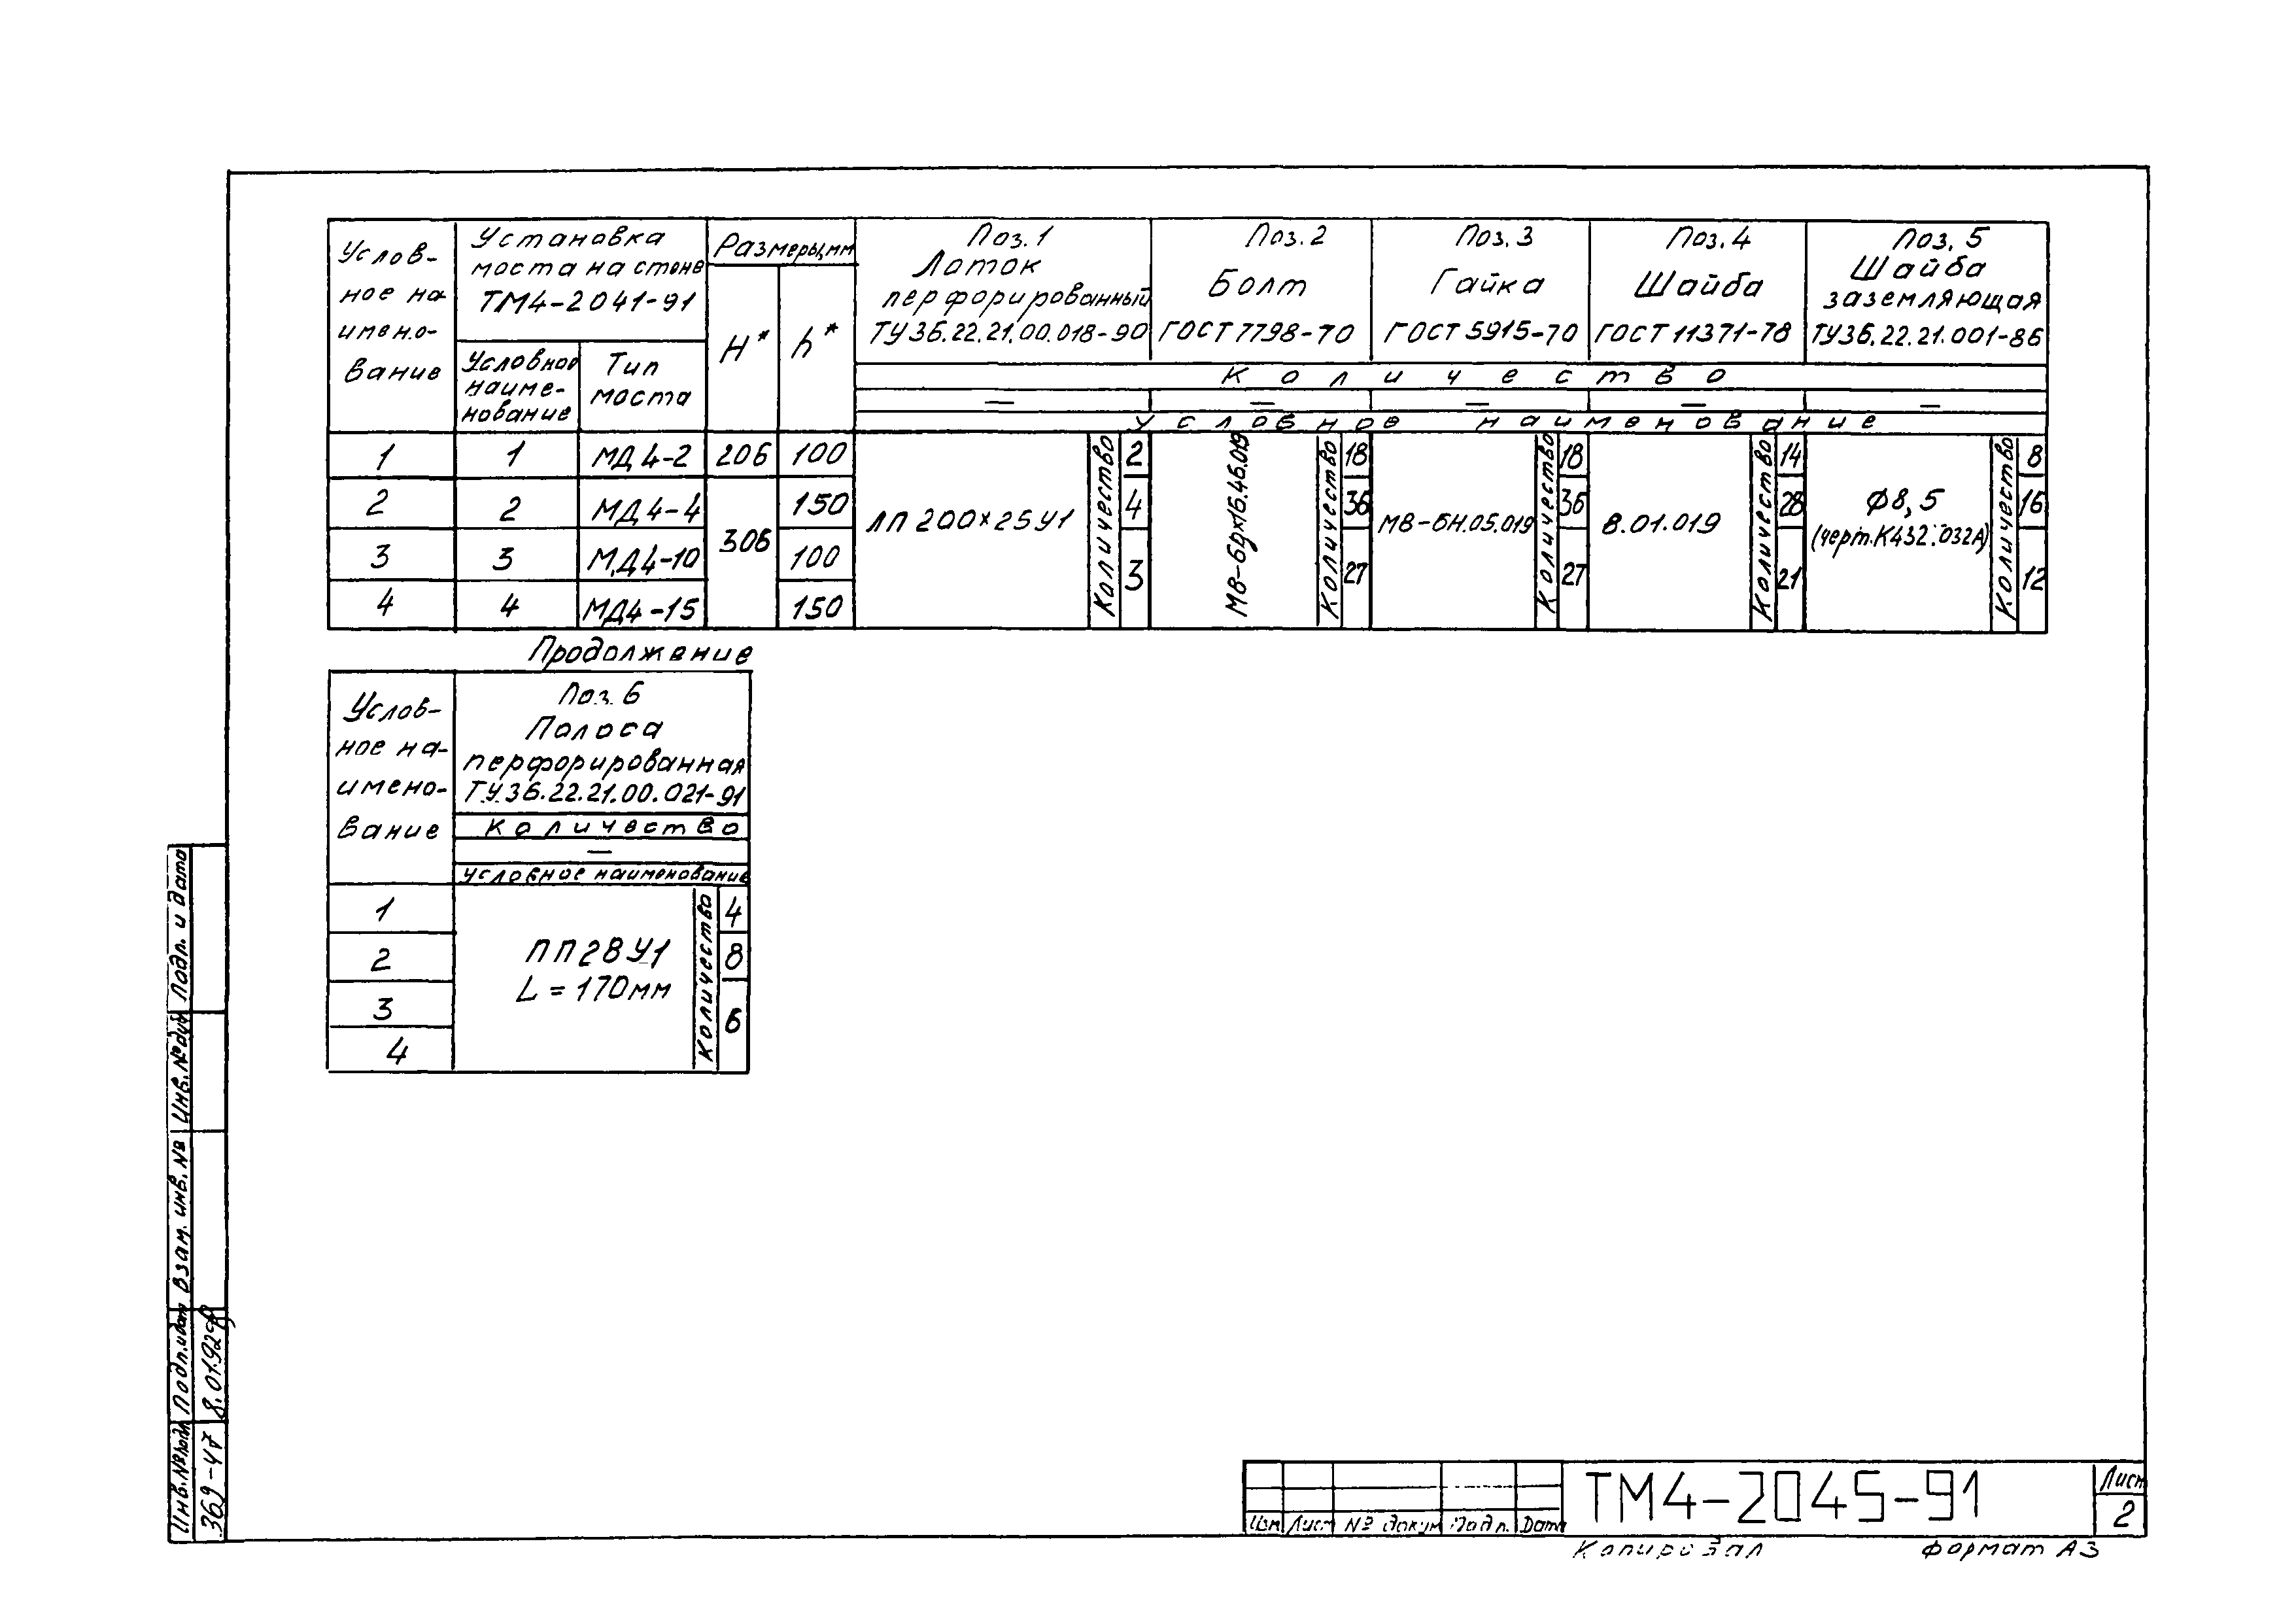 Услов-
ное на-
имено-
вание
Установка
моста на стене
ТМ4-2041-91
Условное
наиме-
нование
Тип
моста
Размеры,мм
H*
h*
Поз.1
Лоток
перфорированный
ТУ36.22.21.00.018-90
Поз.2
Болт
ГОСТ 7798-70
Поз.3
Гайка
ГОСТ 5915-70
Поз.4
Шайба
ГОСТ 11371-78
Поз.5
Шайба
заземляющая
ТУ36.22.21.001-86
Количество
— — — — —
Условное наименование
1 1 МД4-2 206 100
2 2 МД4-4 306 150
3 3 МД4-10 100
4 4 МД4-15 150
ЛП 200×25У1
Количество
2
4
3
М8-6g×16.46.019
Количество
18
36
27
М8-6Н.05.019
Количество
18
36
27
8.01.019
Количество
14
28
21
Ф8,5
(черт.К432.032А)
Количество
8
16
12
Продолжение
Услов-
ное на-
имено-
вание
Поз.6
Полоса
перфорированная
ТУ36.22.21.00.021-91
Количество
—
Условное наименование
1
2
3
4
ПП28У1
L=170мм
Количество
4
8
6
Подп. и дата
Инв.№дуб
Взам. инв. №
Подп.и дат
8.01.92
Инв.№подл
369-47
Изм Лист № докум Подп. Дата
ТМ4-2045-91
Лист
2
Копировал
Формат А3